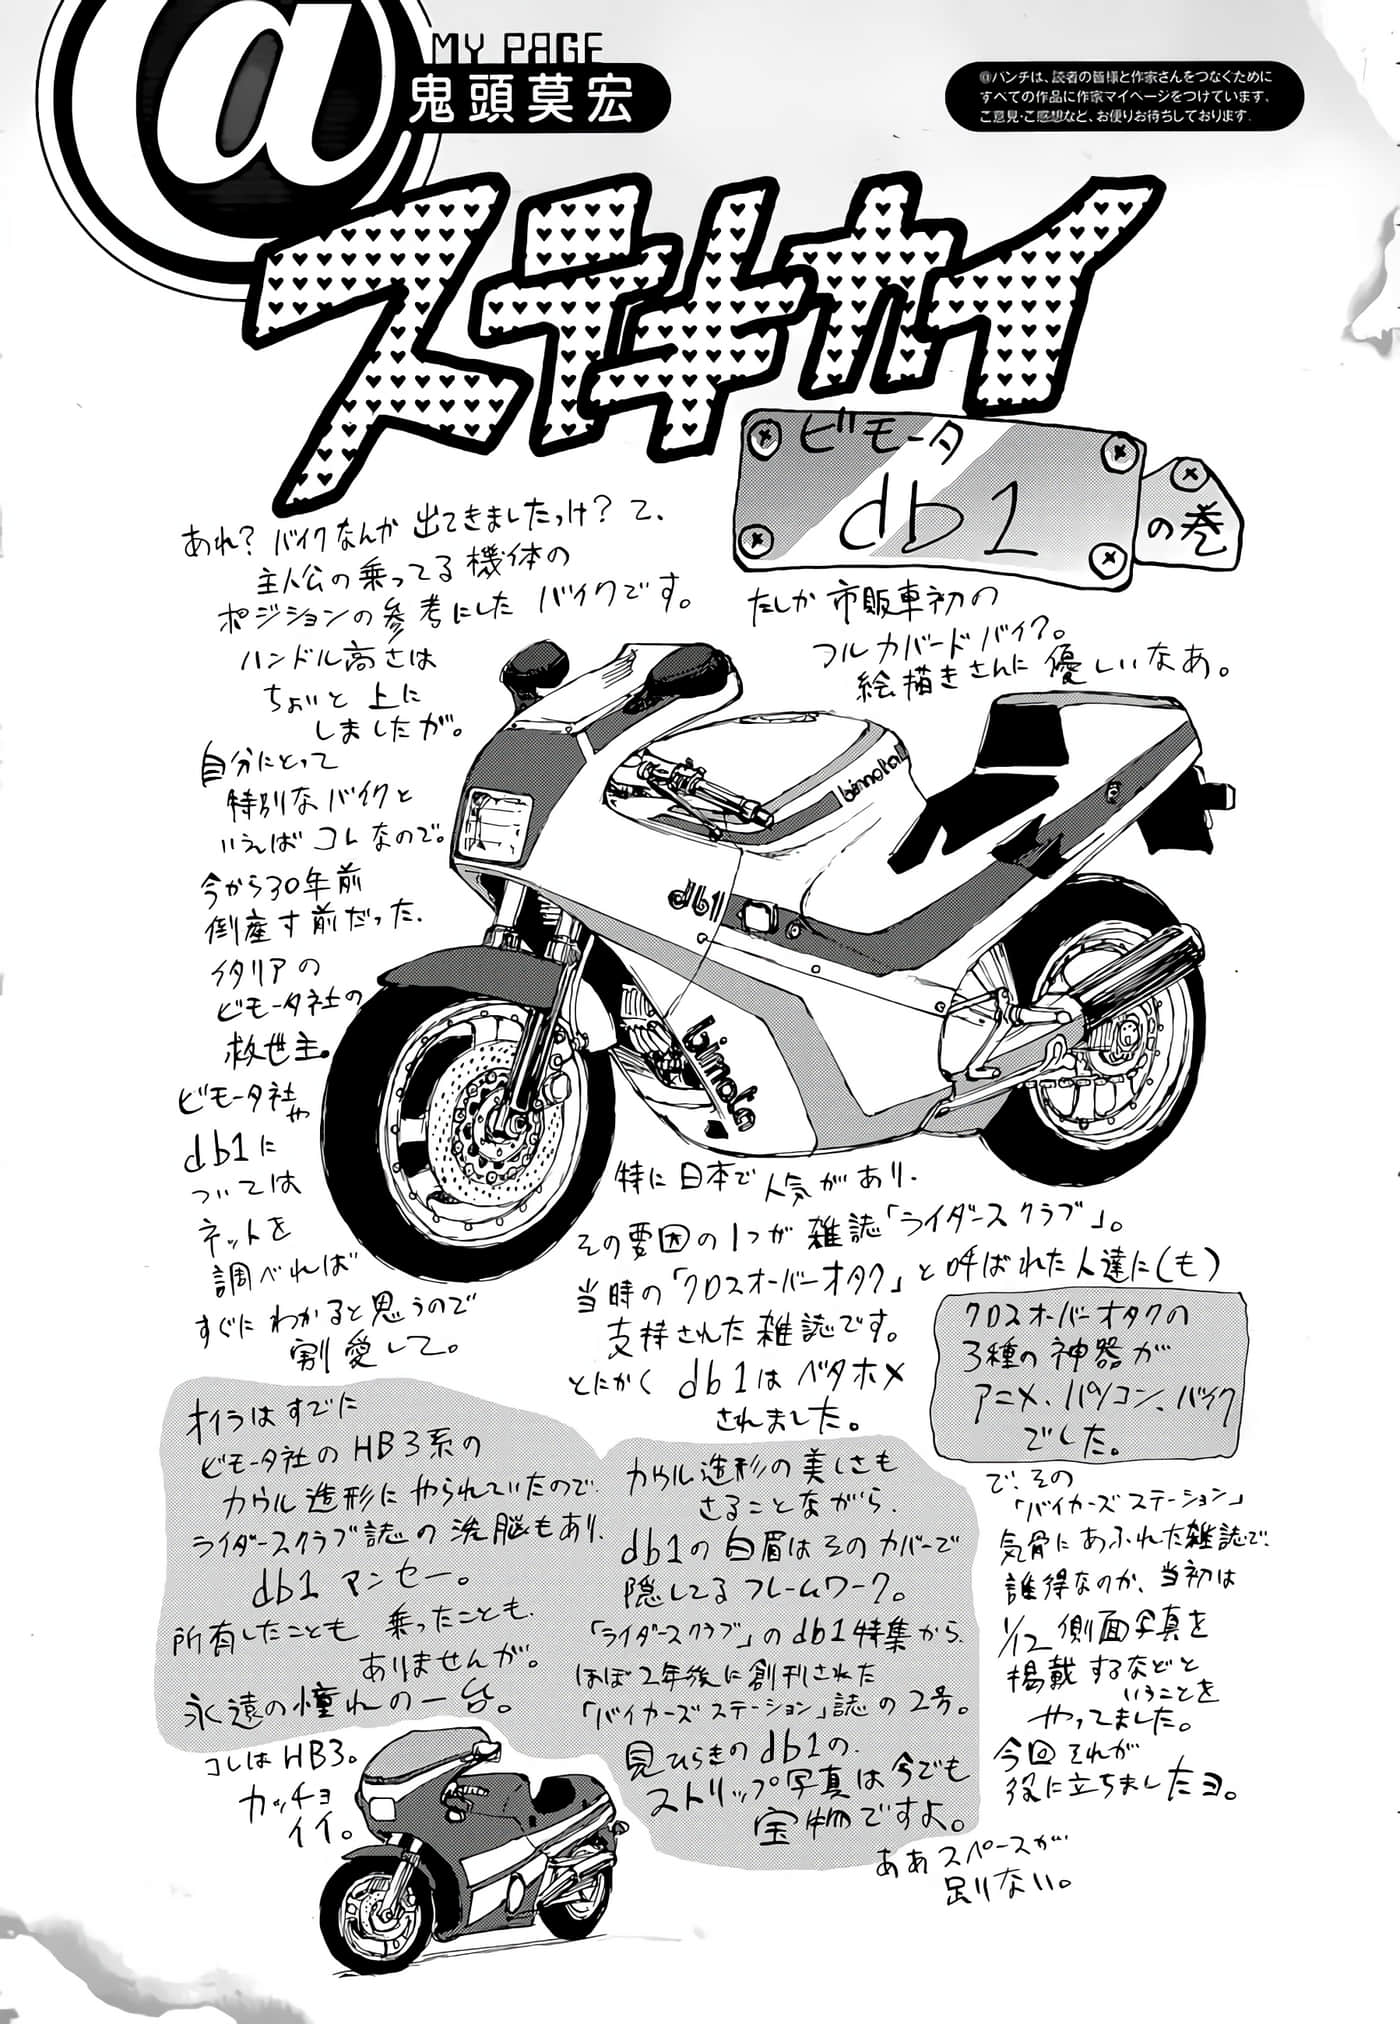 @
MY PAGE
鬼頭莫宏
@バンチは、読者の皆様と作家さんをつなぐために
すべての作品に作家マイページをつけています。
ご意見・ご感想など、お便りお待ちしております。
ステキカイ
ビモータ
db1
の巻
あれ？バイクなんか出てきましたっけ？て、
主人公の乗ってる機体の
ポジションの参考にした バイクです。
ハンドル高さは
ちょいと上に
しましたが。
自分にとって
特別なバイクと
いえばコレなので。
今から30年前
倒産寸前だった、
イタリアの
ビモータ社の
救世主。
ビモータ社や
db1に
ついては
ネットを
調べれば
すぐにわかると思うので
割愛して。
たしか市販車初の
フルカバードバイク。
絵描きさんに優しいなあ。
bimota
db1
bimota
特に日本で人気があり、
その要因の1つが雑誌「ライダースクラブ」。
当時の「クロスオーバーオタク」と呼ばれた人達に(も)
支持された雑誌です。
とにかくdb1はベタホメ
されました。
クロスオーバーオタクの
3種の神器が
アニメ、パソコン、バイク
でした。
オイラはすでに
ビモータ社のHB3系の
カウル造形にやられていたので、
ライダースクラブ誌の洗脳もあり、
db1アンセー。
所有したことも乗ったことも、
ありませんが。
永遠の憧れの一台。
コレはHB3。
カッチョ
イイ。
カウル造形の美しさも
さることながら、
db1の白眉はそのカバーで
隠してるフレームワーク。
「ライダースクラブ」のdb1特集から、
ほぼ2年後に創刊された
「バイカーズステーション」誌の2号。
見ひらきのdb1の、
ストリップ写真は今でも
宝物ですよ。
で、その
「バイカーズステーション」
気骨にあふれた雑誌で、
誰得なのか、当初は
1/12側面写真を
掲載するなどと
いうことを
やってました。
今回それが
役に立ちましたヨ。
ああスペースが
足りない。